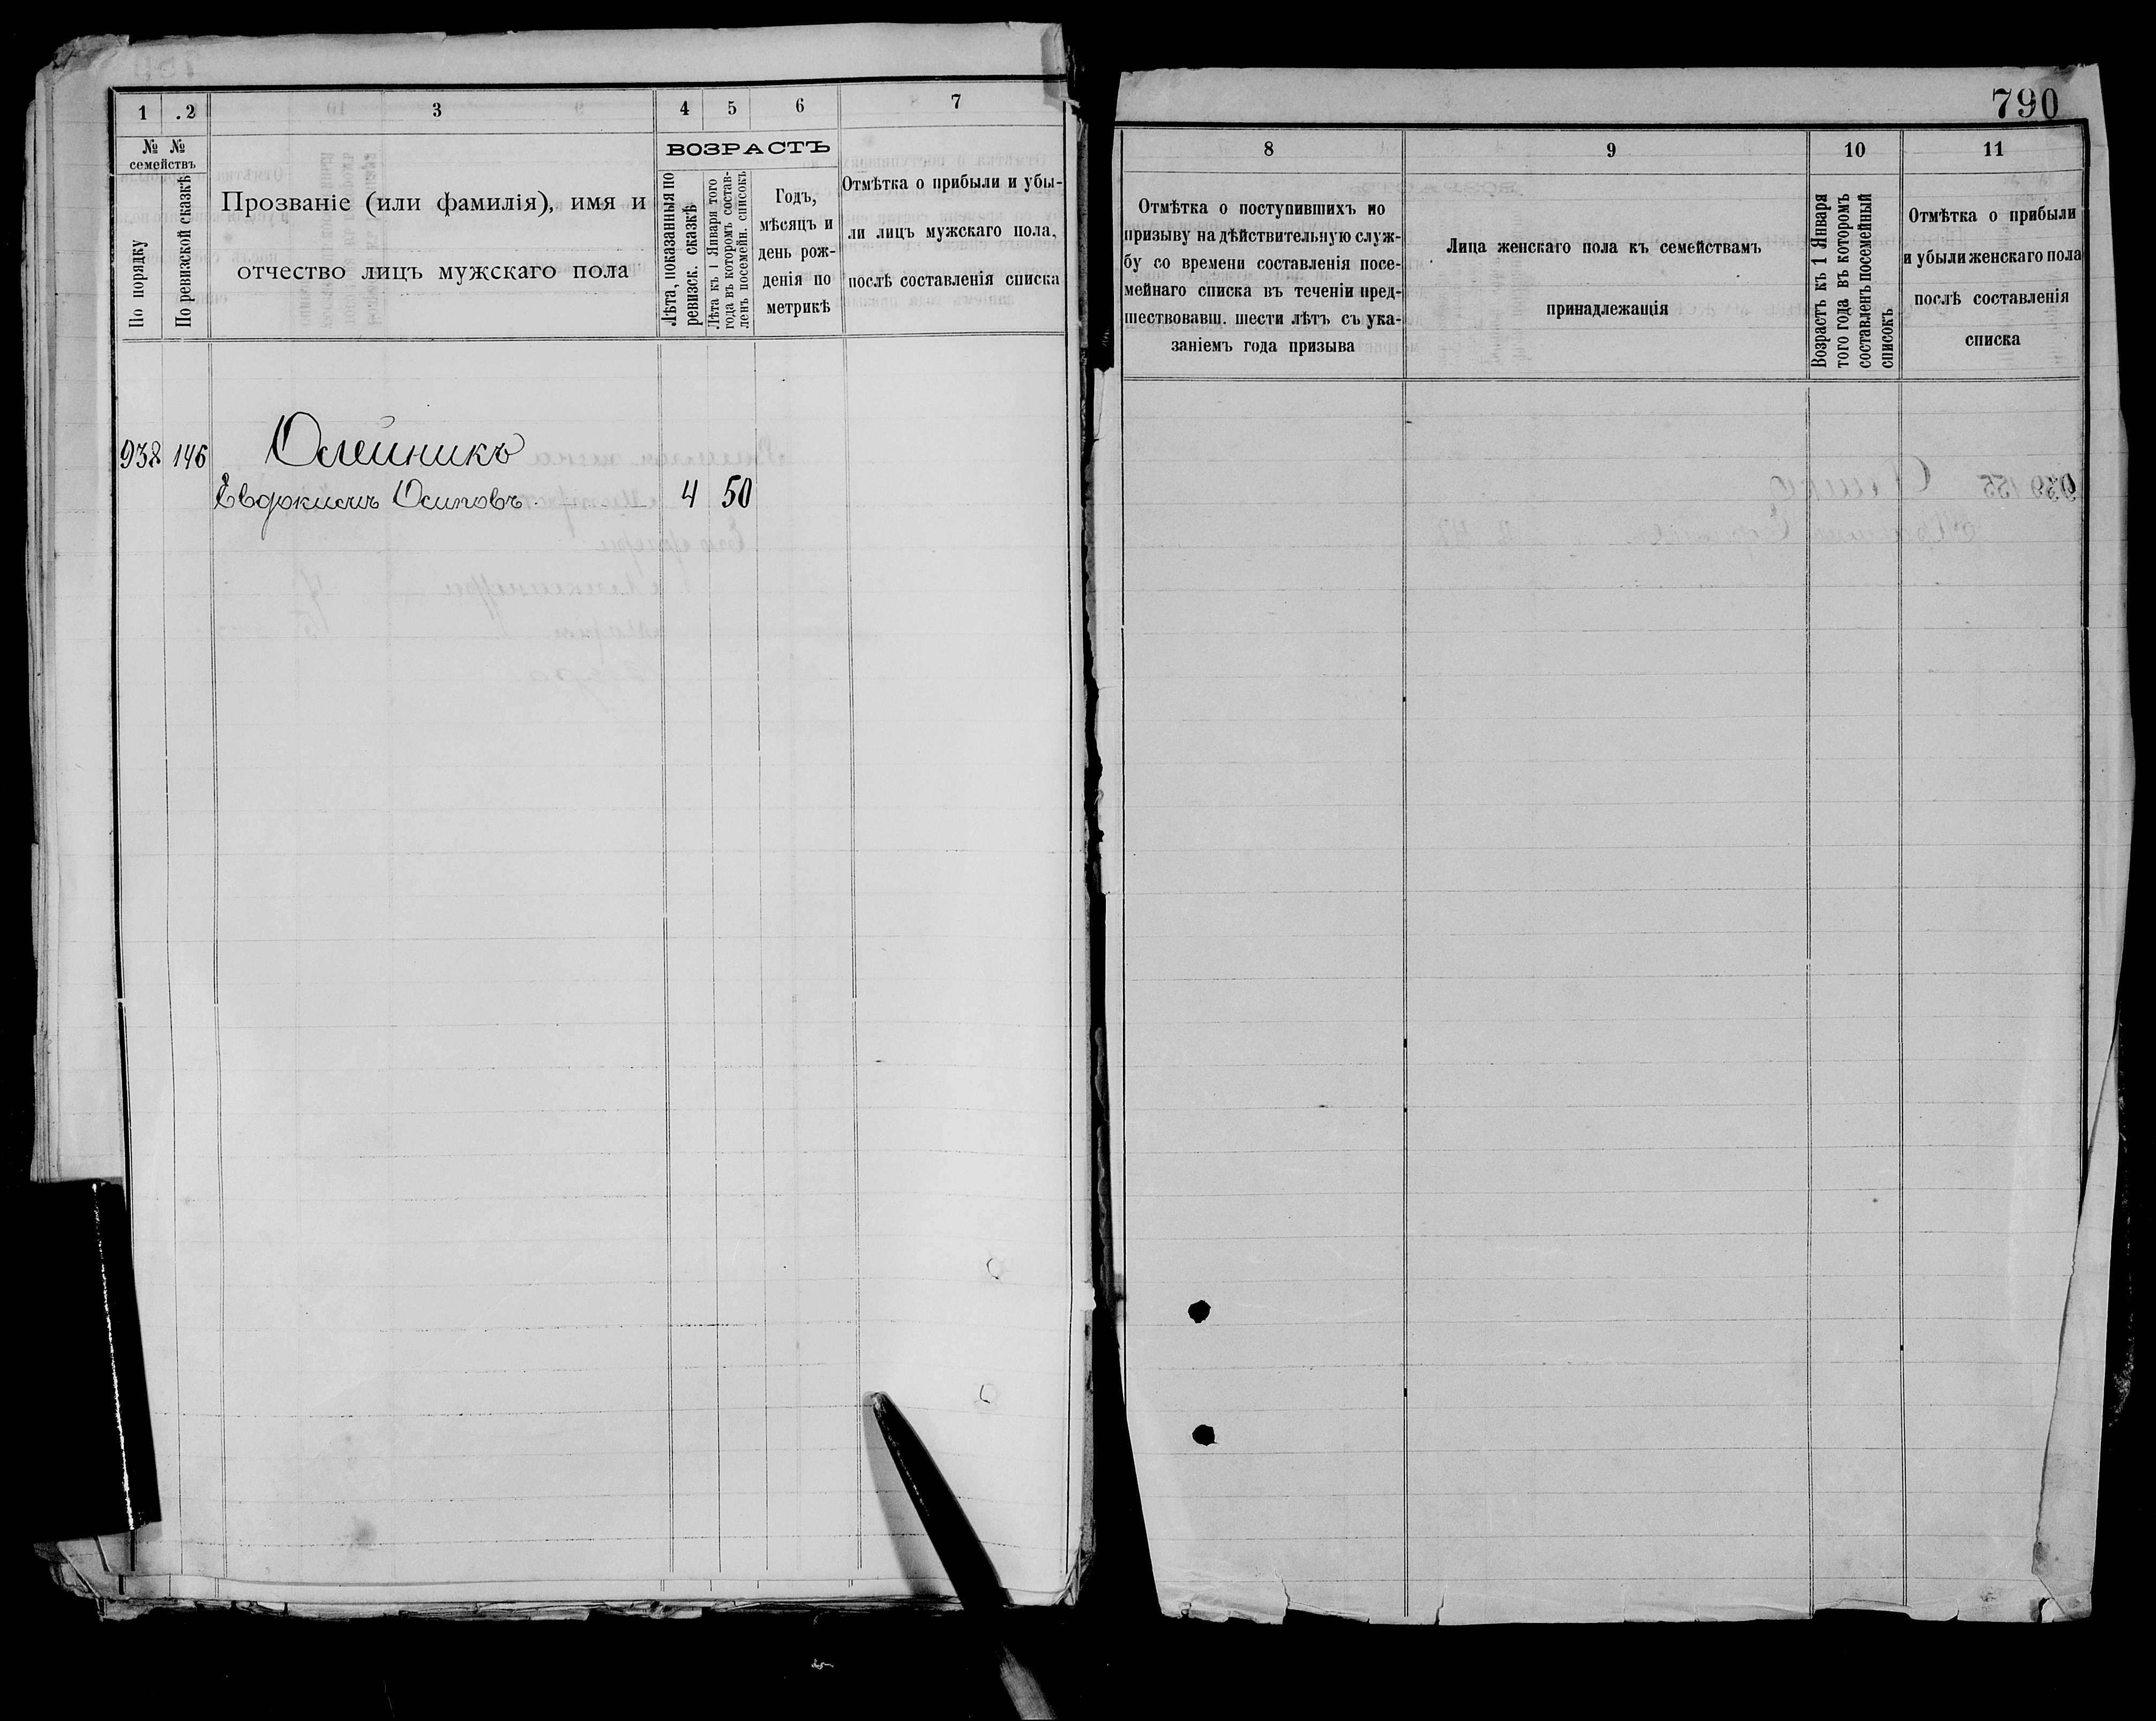 790
1 2 3 4 5 6 7
№ № семействъ
По порядку
По ревизской сказкѣ
Прозваніе (или фамилія), имя и
отчество лицъ мужскаго пола
ВОЗРАСТЪ
Лѣта, показанныя по
ревизск. сказкѣ
Лѣта къ 1 Января того
года въ которомъ состав-
ленъ посемейн. списокъ
Годъ,
мѣсяцъ и
день рож-
денія по
метрикѣ
Отмѣтка о прибыли и убы-
ли лицъ мужскаго пола,
послѣ составленія списка
938 146 Олейникъ
Евдокимъ Осиповъ 4 50
8 9 10 11
Отмѣтка о поступившихъ по
призыву на дѣйствительную служ-
бу со времени составленія посе-
мейнаго списка въ теченіи пред-
шествовавш. шести лѣтъ съ ука-
заніемъ года призыва
Лица женскаго пола къ семействамъ
принадлежащія
Возрастъ къ 1 Января
того года въ которомъ
составленъ посемейный
списокъ
Отмѣтка о прибыли
и убыли женскаго пола
послѣ составленія
списка